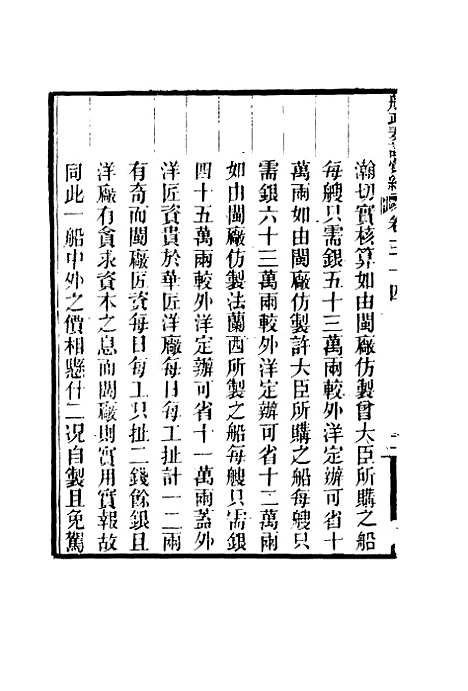 船政奏議彙編 卷三十四
瀚切實核算如由閩廠仿製曾大臣所購之船
每艘只需銀五十三萬兩較外洋定辦可省十
萬兩如由閩廠仿製許大臣所購之船每艘只
需銀六十三萬兩較外洋定辦可省十二萬兩
如由閩廠仿製法蘭西所製之船每艘只需銀
四十五萬兩較外洋定辦可省十一萬兩蓋外
洋匠資貴於華匠洋廠每日每工扯計一二兩
有奇而閩廠匠資每日每工只扯二錢餘銀且
洋廠有貪求資本之息而閩廠則實用實報故
同此一船中外之價相懸什二況自製且免駕